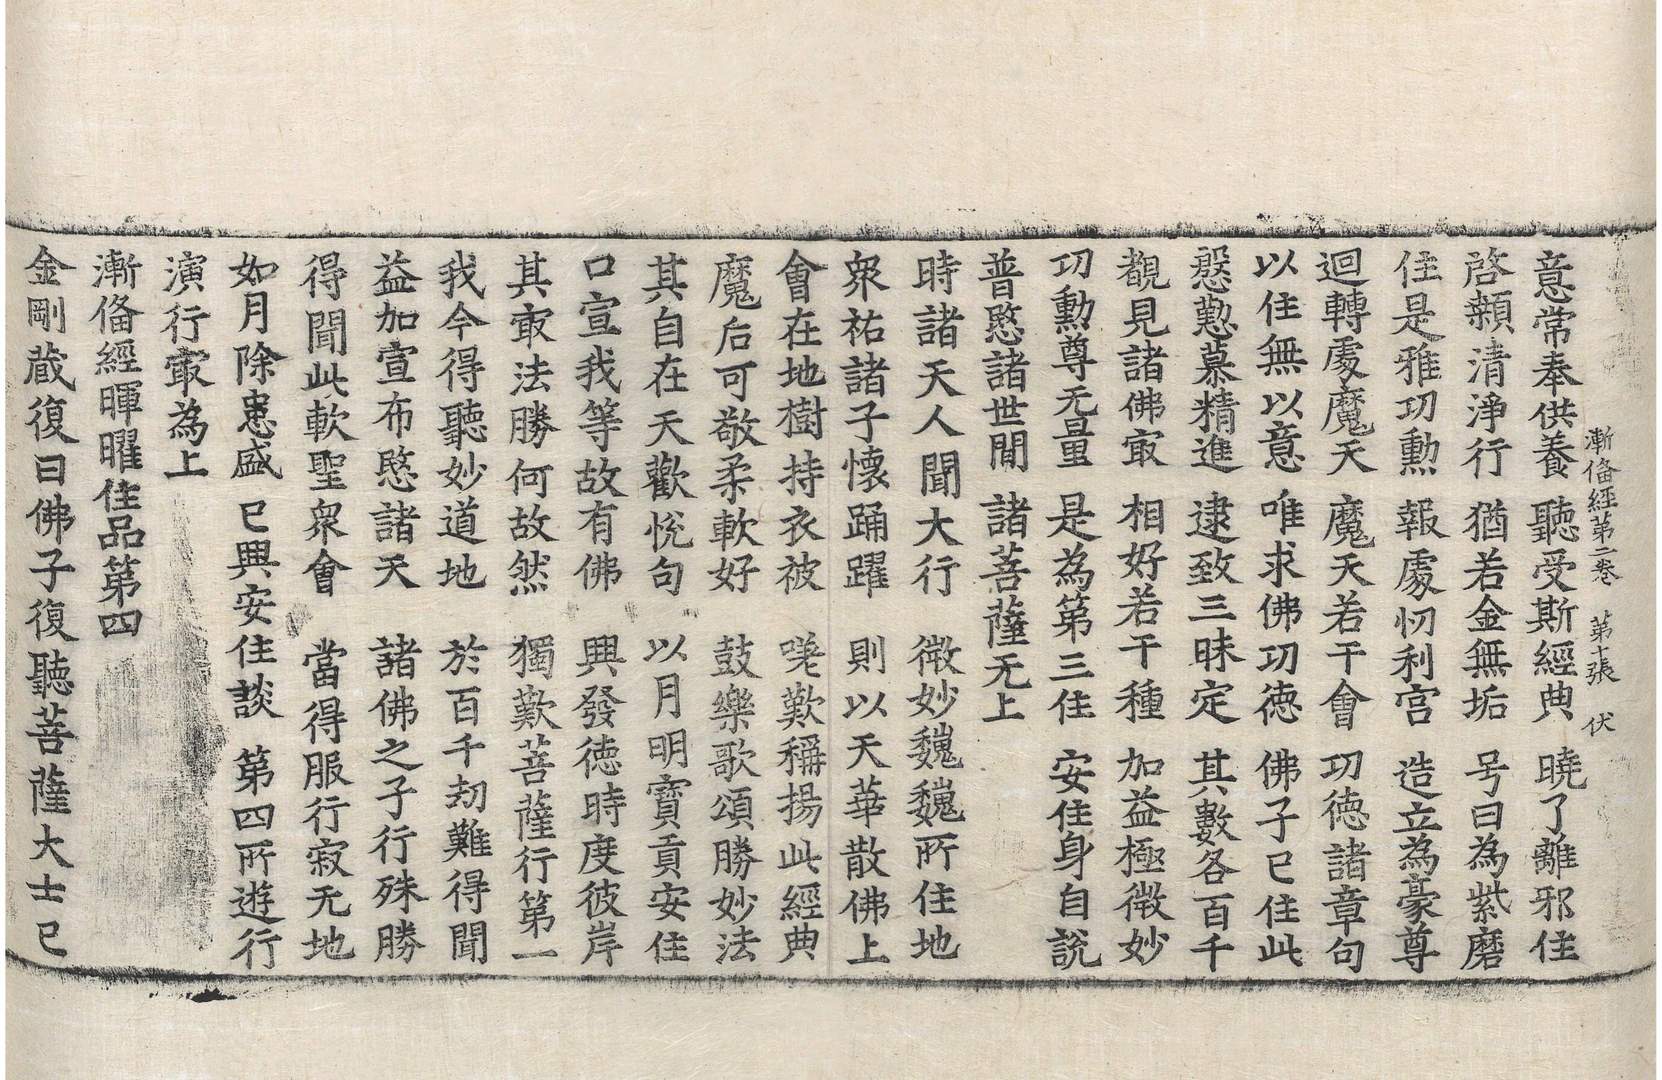 漸備經第二卷　第十張　伏
意常奉供養　聽受斯經典　曉了離邪住
啓顙清淨行　猶若金無垢　号曰為紫磨
住是雅功勲　報處忉利宫　造立為豪尊
迴轉處魔天　魔天若干會　功徳諸章句
以住無以意　唯求佛功徳　佛子已住此
慇懃慕精進　逮致三昧定　其數各百千
覩見諸佛㝡　相好若干種　加益極微妙
功勲尊无量　是為第三住　安住身自說
普愍諸世閒　諸菩薩无上
時諸天人聞大行　微妙巍巍所住地
衆祐諸子懷踊躍　則以天華散佛上
會在地樹持衣被　嗟歎稱揚此經典
魔后可敬柔軟好　鼓樂歌頌勝妙法
其自在天歡悅句　以月明寶貢安住
口宣我等故有佛　興發徳時度彼岸
其㝡法勝何故然　獨歎菩薩行第一
我今得聽妙道地　於百千劫難得聞
益加宣布愍諸天　諸佛之子行殊勝
得聞此軟聖衆會　當得服行寂无地
如月除恚盛　已興安住談　第四所遊行
演行㝡為上
漸備經暉曜住品第四
金剛蔵復曰佛子復聽菩薩大士已